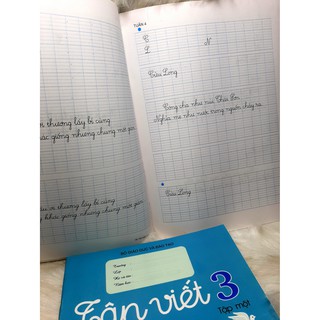 TUẦN 4
C
L N
Cửu Long
Công cha như núi Thái Sơn
Nghĩa mẹ như nước trong nguồn chảy ra.
Cửu Long
thương lấy bí cùng
khác giống nhưng chung một giàn
thương lấy bí cùng
khác giống nhưng chung một giàn
BỘ GIÁO DỤC VÀ ĐÀO TẠO
Trường
Lớp
Họ và tên
Năm học
Tập viết 3
TẬP MỘT